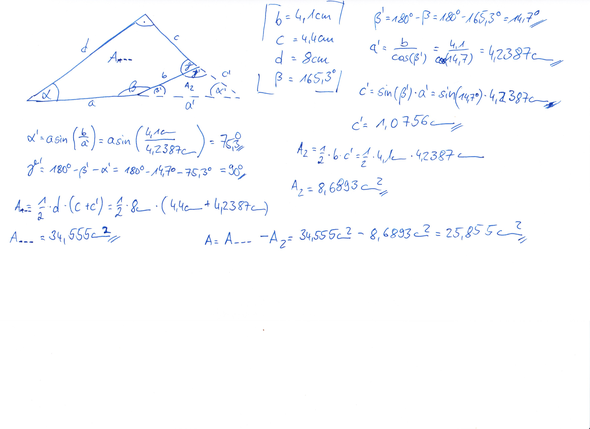 d
c
A...
b
γ γ'
c'
α
β
β'
A₂
α'
a
a'
b = 4,1cm
c = 4,4cm
d = 8cm
β = 165,3°
β' = 180° - β = 180° - 165,3° = 14,7°
a' = b/cos(β') = 4,1/cos(14,7) = 4,2387c
c' = sin(β') · a' = sin(14,7°) · 4,2387c
c' = 1,0756c
α' = asin(b/a) = asin(4,1c/4,2387c) = 75,3°
γ' = 180° - β' - α' = 180° - 14,7° - 75,3° = 90°
A₂ = 1/2 · b · c' = 1/2 · 4,1c · 4,2387c
A₂ = 8,6893c²
A... = 1/2 · d · (c + c') = 1/2 · 8c · (4,4c + 4,2387c)
A... = 34,555c²
A = A... - A₂ = 34,555c² - 8,6893c² = 25,855c²